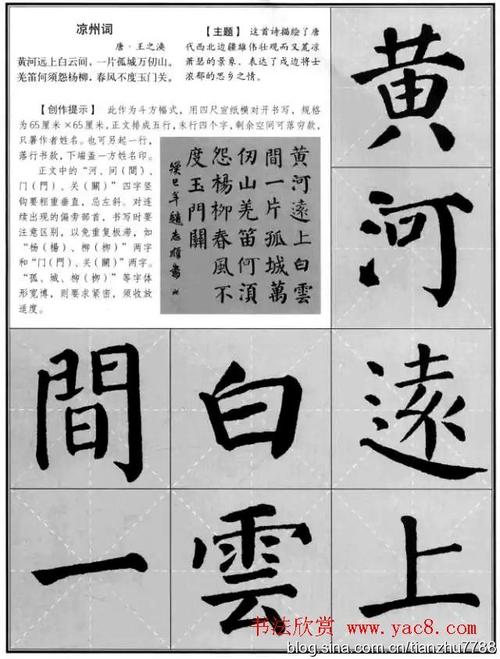 凉州词
唐·王之涣
黄河远上白云间,一片孤城万仞山。
羌笛何须怨杨柳,春风不度玉门关。
【主题】 这首诗描绘了唐
代西北边疆雄伟壮观而又荒凉
萧瑟的景象,表达了戍边将士
浓郁的思乡之情。
【创作提示】 此作为斗方幅式,用四尺宣纸横对开书写,规格
为65厘米×65厘米,正文排成五行,末行四个字,剩余空间可落穷款,
只署作者姓名。也可另起一行,
落行书款,下端盖一方姓名印。
正文中的“河、间(間)、
门(門)、关(關)”四字竖
钩要粗重垂直,忌左斜。对连
续出现的偏旁部首,书写时要
注意区别,以免重复板滞,如
“杨(楊)、柳(桺)”两字
和“门(門)、关(關)”两字。
“孤、城、柳(桺)”等字体
形宽博,则要求紧密,须收放
适度。
黄河遠上白雲
間一片孤城萬
仞山羌笛何須
怨楊柳春風不
度玉門關
癸巳年趙志
黄河遠上
白雲
間一
书法欣赏 www.yac8.com
blog.sina.com.cn/tianzhu7788